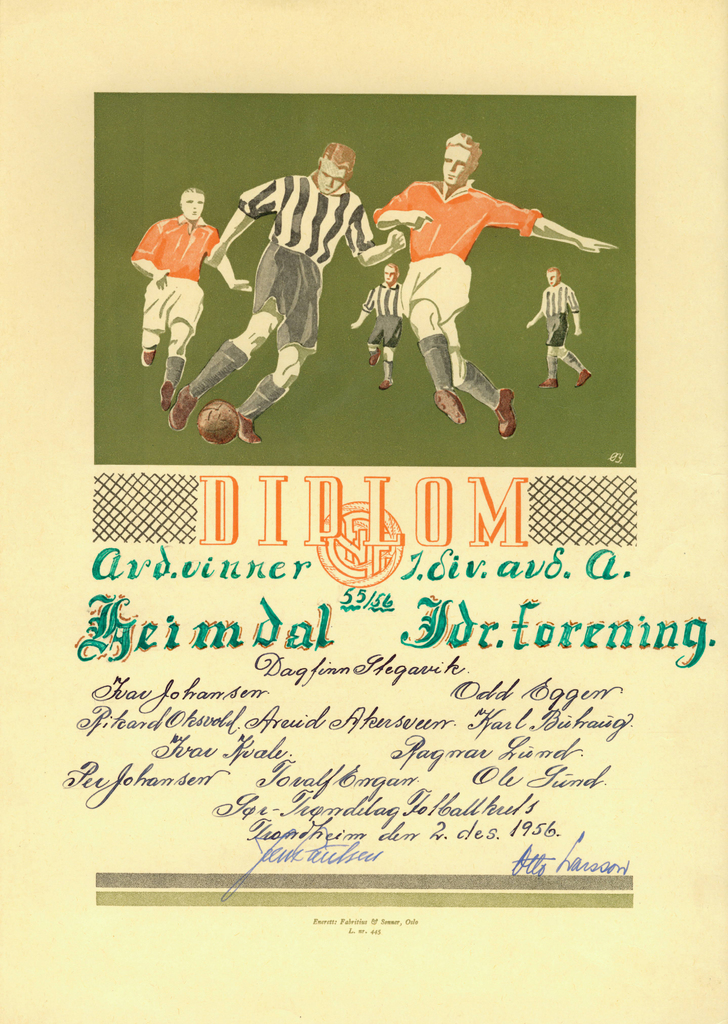 DIPLOM
Avd.vinner 1.div. avd. A.
55/56
Heimdal Idr.forening.
Dagfinn Stegavik.
Ivar Johansen Odd Eggen
Rikard Oksvold. Arvid Akersveen. Karl Buhaug.
Ivar Kvale. Ragnar Lund.
Per Johansen Toralf Engan. Ole Sund.
Sør-Trøndelag Fotballkrets
Trondheim den 2. des. 1956.
Otto Larsson
Enerett: Fabritius & Sønner, Oslo
L. nr. 445